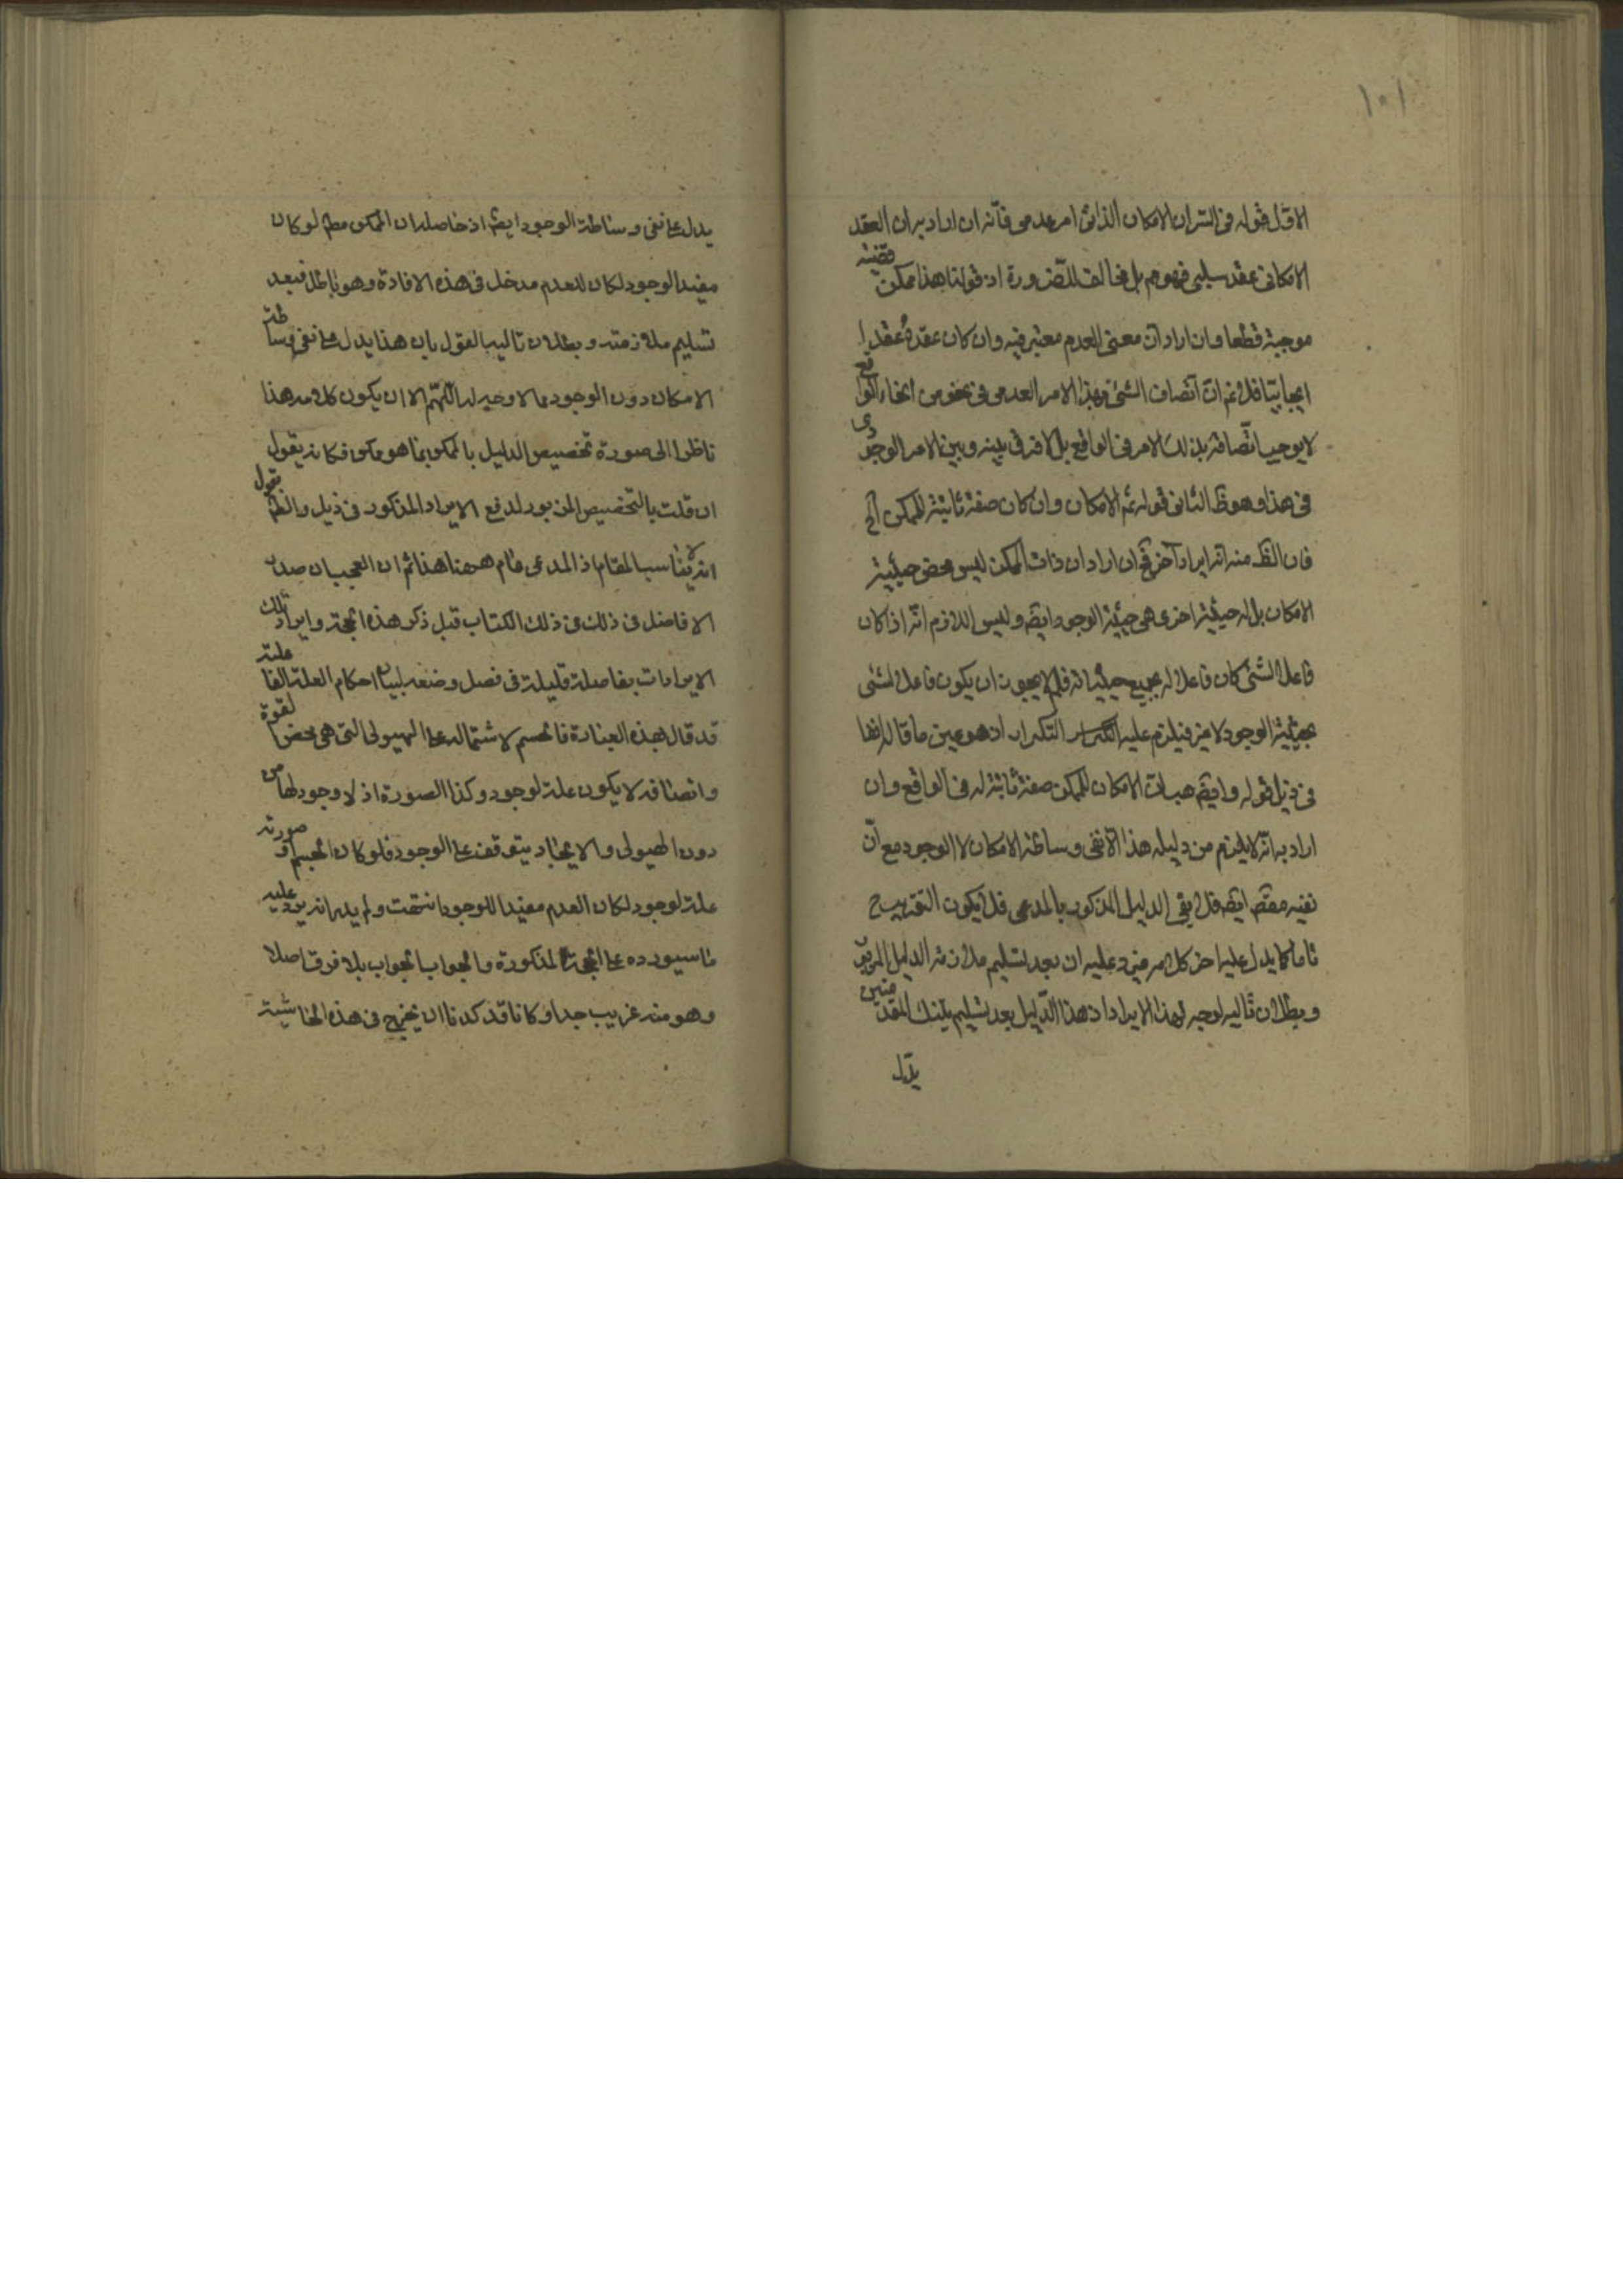 ١٠١
الاول قوله فى السر ان الامكان الذاتى امر عدمى فانه ان اراد به ان العقد
الامكانى عقد سلبى فهو وهم بل مخالف للضرورة اذ قولنا هذا ممكن قضية
موجبة قطعا وان اراد ان معنى العدم معتبر فيه وان كان عقده عقدا
ايجابيا فلا نم ان اتصاف الشئ بهذا الامر العدمى فى نحو من انحاء الواقع
لا يوجب اتصافه بذلك الامر فى الواقع بل لا فرق بينه وبين الامر الوجودى
فى هذا وهو ظ الثانى قوله ثم الامكان وان كان صفة ثابتة للممكن آلخ
فان الظ منه انه ايراد آخر فح ان اراد ان ذات الممكن ليس محض حيثية
الامكان بل له حيثية اخرى هى حيثية الوجود ايضه وليس اللازم انه اذا كان
فاعل الشئ كان فاعلا له بجميع حيثياته فلم لا يجوز ان يكون فاعل الشئى
بحيثية الوجود لا غير فيلزم عليه التكرار اذ هو عين ما قاله انفا
فى ذيل قوله وايضه هب ان الامكان للممكن صفة ثابتة له فى الواقع وان
اراد به انه لا يلزم من دليله هذا الا نفى وساطة الامكان لا الوجود مع ان
نفيه مقصه ايضه فلا يفى الدليل المذكور بالمدعى فلا يكون التقريب ح
تاما كما يدل عليه اخر كلامه فيرد عليه ان بعد تسليم ملازمة الدليل المزبور
وبطلان تاليه لا وجه لهذا الايراد اذ هذا الدليل بعد تسليم تينك المقدمتين
يدل
يدل على نفى وساطة الوجود ايضه اذ حاصله ان الممكن مطه لو كان
مفيد الوجود لكان للعدم مدخل فى هذه الافادة وهو باطل فبعد
تسليم ملازمته وبطلان تاليه القول بان هذا يدل على نفى وساطة
الامكان دون الوجود مما لا وجه له اللهم الا ان يكون كلامه هذا
ناظرا الى صورة تخصيص الدليل بالممكن بما هو ممكن فكانه يقول
ان قلت بالتخصيص المزبور لدفع الايراد المذكور فى ذيل والظ نقول
انه لا يناسب المقام اذ المدعى عام ههنا هذا ثم ان العجب ان صدر
الافاضل فى ذلك فى ذلك الكتاب قبل ذكر هذه الحجة وايراد تلك
الايرادات بفاصلة قليلة فى فصل وضعه لبيان احكام العلة الفاعلية
قد قال بهذه العبارة فالجسم لاشتماله على الهيولى التى هى محض القوة
واتصافه لا يكون علة لوجود وكذا الصورة اذ لا وجود لها من
دون الهيولى والايجاد يتوقف على الوجود فلو كان الجسم او صورته
علة لوجود لكان العدم مفيدا للوجود انتهت ولم يدر انه يرد عليه
ما سيورده على الحجة المذكورة والجواب الجواب بلا فرق اصلا
وهو منه غريب جدا وكانا قد كدنا ان نخرج فى هذه الحاشية